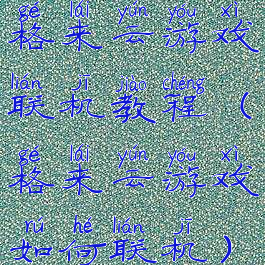 gé lái yún yóu xì
格来云游戏
lián jī jiào chéng
联机教程（
gé lái yún yóu xì
格来云游戏
rú hé lián jī
如何联机）